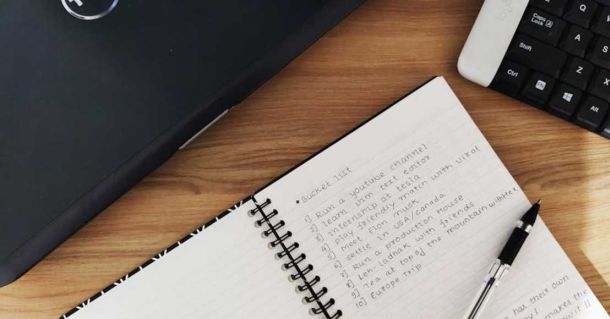 • Bucket list
1] Run a youtube channel
2] learn vim text editor
3] Internship at tesla
4] Play friendly match with Virat
5] Meet Elon musk
6] settle in USA/canada
7] Run a production House
8] Leh-ladhak with friends
9] Tea at top of the mountain with Her
10] Europe Trip
has their own
makes the
Caps Lock
A
S
Shift
Z
X
Ctrl